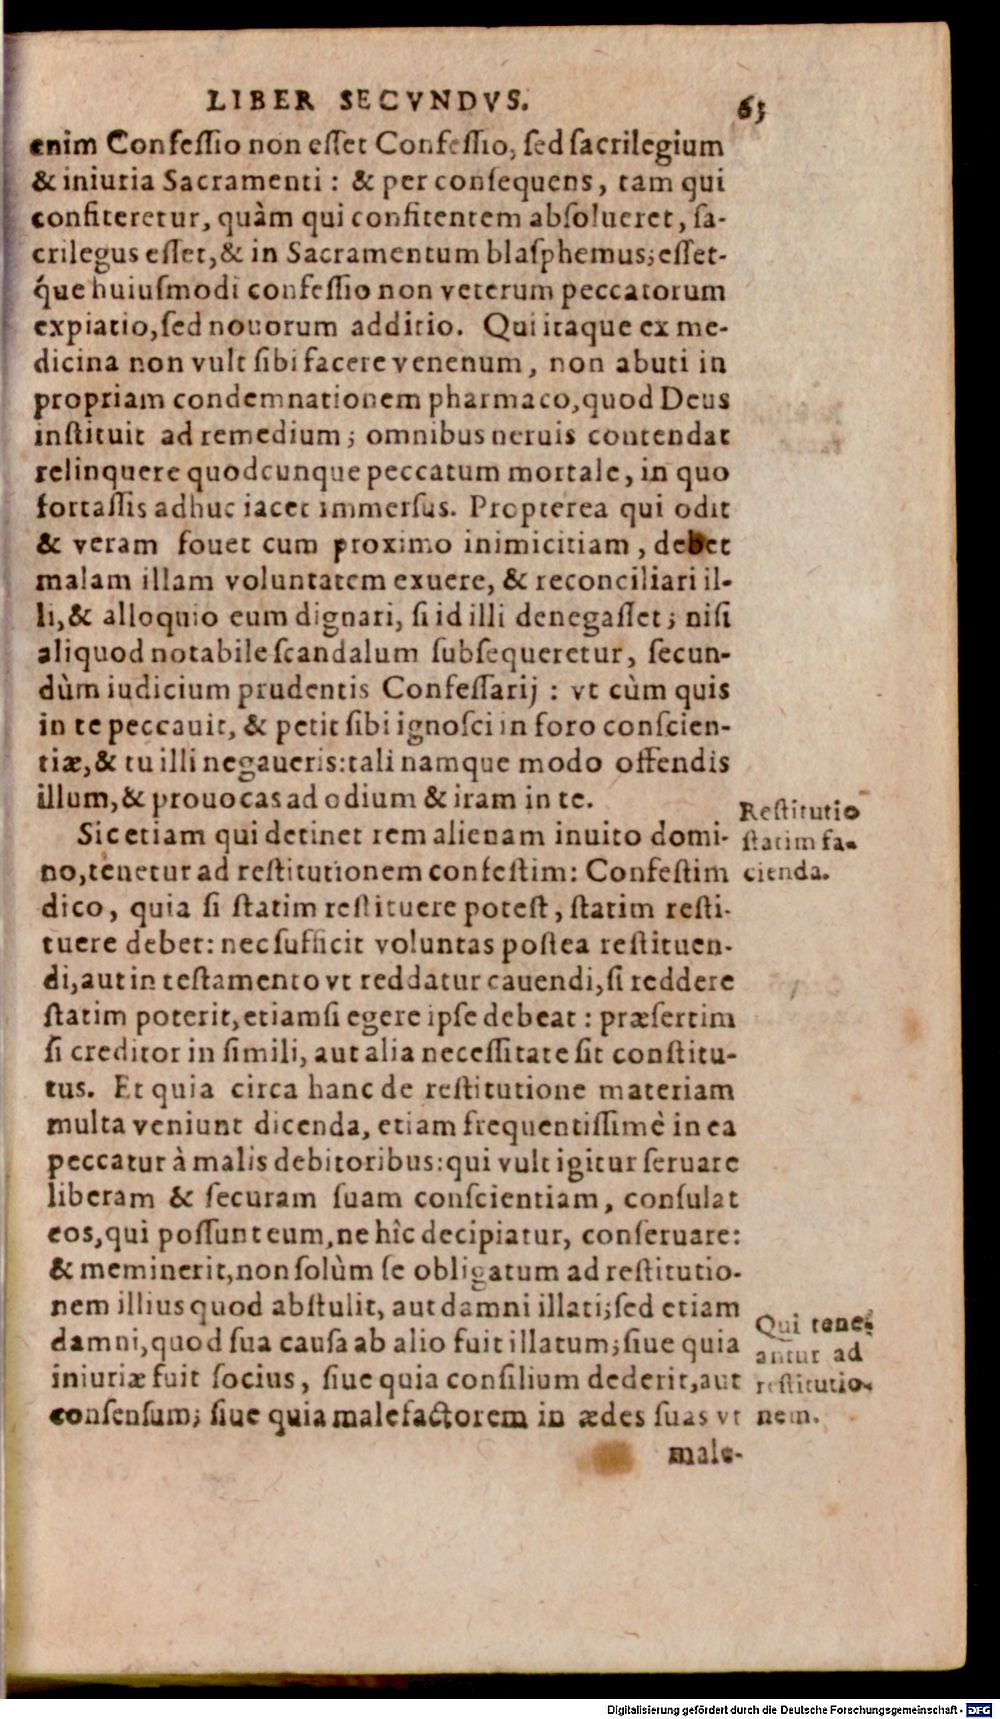 LIBER SECVNDVS. 63
enim Confessio non esset Confessio, sed sacrilegium
& iniuria Sacramenti : & per consequens, tam qui
confiteretur, quàm qui confitentem absolueret, sa-
crilegus esset, & in Sacramentum blasphemus; esset-
q́ue huiusmodi confessio non veterum peccatorum
expiatio, sed nouorum additio. Qui itaque ex me-
dicina non vult sibi facere venenum, non abuti in
propriam condemnationem pharmaco, quod Deus
instituit ad remedium; omnibus neruis contendat
relinquere quodcunque peccatum mortale, in quo
fortassis adhuc iacet immersus. Propterea qui odit
& veram fouet cum proximo inimicitiam, debet
malam illam voluntatem exuere, & reconciliari il-
li, & alloquio eum dignari, si id illi denegasset; nisi
aliquod notabile scandalum subsequeretur, secun-
dùm iudicium prudentis Confessarij : vt cùm quis
in te peccauit, & petit sibi ignosci in foro conscien-
tiæ, & tu illi negaueris: tali namque modo offendis
illum, & prouocas ad odium & iram in te.
Sic etiam qui detinet rem alienam inuito domi-
no, tenetur ad restitutionem confestim: Confestim
dico, quia si statim restituere potest, statim resti-
tuere debet: nec sufficit voluntas postea restituen-
di, aut in testamento vt reddatur cauendi, si reddere
statim poterit, etiamsi egere ipse debeat : præsertim
si creditor in simili, aut alia necessitate sit constitu-
tus. Et quia circa hanc de restitutione materiam
multa veniunt dicenda, etiam frequentissimè in ea
peccatur à malis debitoribus: qui vult igitur seruare
liberam & securam suam conscientiam, consulat
eos, qui possunt eum, ne hîc decipiatur, conseruare:
& meminerit, non solùm se obligatum ad restitutio-
nem illius quod abstulit, aut damni illati; sed etiam
damni, quod sua causa ab alio fuit illatum; siue quia
iniuriæ fuit socius, siue quia consilium dederit, aut
consensum; siue quia malefactorem in ædes suas vt
male-
Restitutio
statim fa-
cienda.
Qui tene-
antur ad
restitutio-
nem.
Digitalisierung gefördert durch die Deutsche Forschungsgemeinschaft - DFG